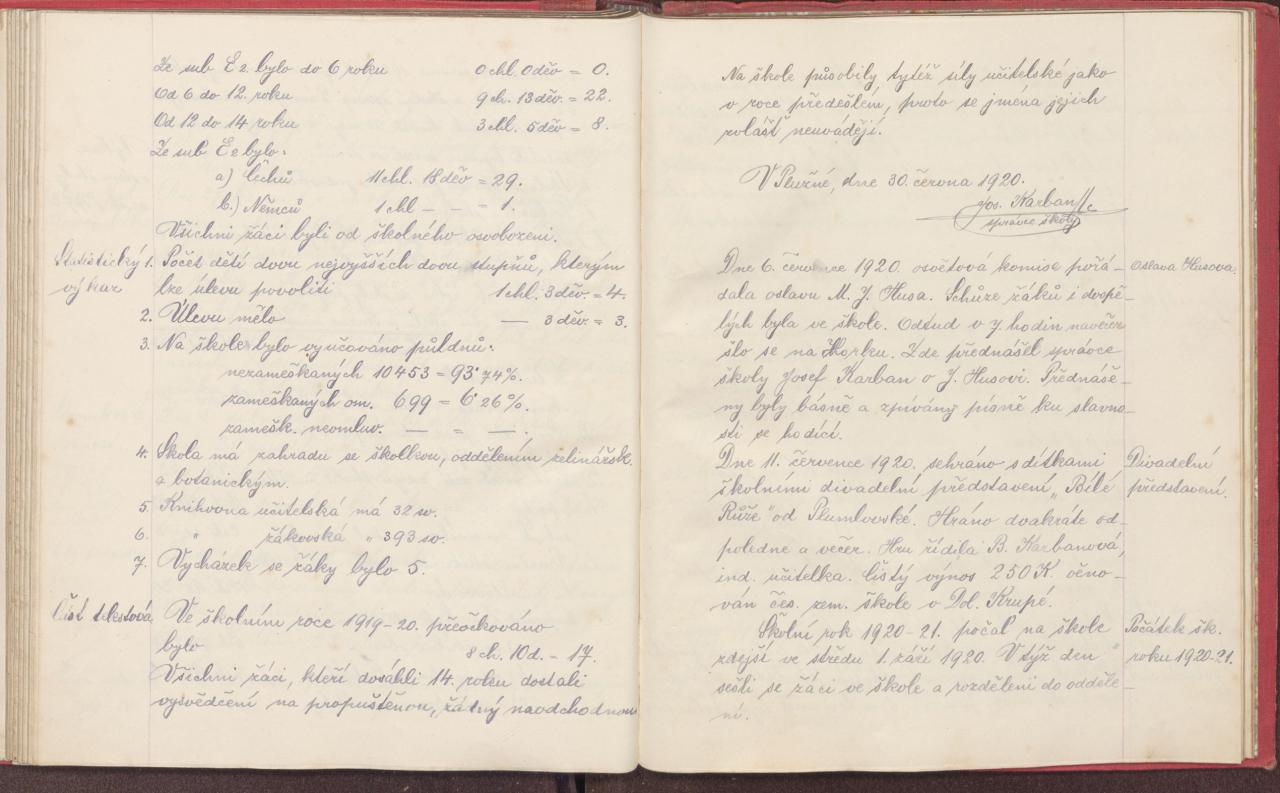 Ze sub E 2. bylo do 6 roku 0 chl. 0 děv = 0.
Od 6 do 12. roku 9 ch. 13 děv. = 22.
Od 12 do 14 roku 3 chl. 5 děv = 8.
Ze sub E e bylo:
a) Čechů 11 chl. 18 děv = 29.
b.) Němců 1 chl — — = 1.
Všichni žáci byli od školného osvobozeni.
Statistický výkaz
1. Počet dětí dvou nejvyšších dvou stupňů, kterým
lze úlevu povoliti 1 chl. 3 děv. = 4.
2. Úlevu mělo — 3 děv. = 3.
3. Na škole bylo vyučováno půldnů:
nezameškaných 10453 = 93˙74%.
zameškaných om. 699 = 6˙26%.
zamešk. neomluv. — = —.
4. Škola má zahradu se školkou, oddělením zelinářsk.
a botanickým.
5. Knihovna učitelská má 32 sv.
6. " žákovská " 393 sv.
7. Vycházek se žáky bylo 5.
Část tekstová
Ve školním roce 1919-20. přeočkováno
bylo 8 ch. 10 d. - 17.
Všichni žáci, kteří dosáhli 14. roku dostali
vysvědčení na propuštěnou, žádný na odchodnou
Na škole působily tytéž síly učitelské jako
v roce předešlém, proto se jména jejich
zvlášť neuvádějí.
V Plužné, dne 30. června 1920.
Jos. Karban
správce školy
Dne 6. července 1920. osvětová komise pořá-
dala oslavu M. J. Husa. Schůze žáků i dospě-
lých byla ve škole. Odtud v 7 hodin navečer
šlo se na Horku. Zde přednášel správce
školy Josef Karban o J. Husovi. Přednáše-
ny byly básně a zpívány písně ku slavno-
sti se hodící.
Oslava Husova.
Dne 11. července 1920. sehráno s dítkami
školními divadelní představení „Bílé
Růže" od Plumlovské. Hráno dvakráte od-
poledne a večer. Hru řídila B. Karbanová,
ind. učitelka. Čistý výnos 250 K. věno-
ván čes. zem. škole v Dol. Krupé.
Divadelní
představení.
Školní rok 1920-21. počal na škole
zdejší ve středu 1. září 1920. V týž den
sešli se žáci ve škole a rozděleni do odděle-
ní.
Počátek šk.
roku 1920-21.